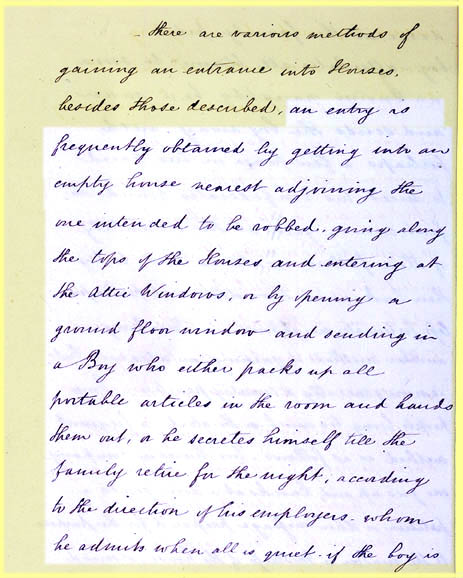 There are various methods of
gaining an entrance into Houses,
besides those described, an entry is
frequently obtained by getting into an
empty house nearest adjoining the
one intended to be robbed, going along
the tops of the Houses and entering at
the Attic Windows, or by opening a
ground floor window and sending in
a Boy who either packs up all
portable articles in the room and hands
them out, or he secretes himself till the
family retire for the night, according
to the direction of his employers - whom
he admits when all is quiet - if the boy is